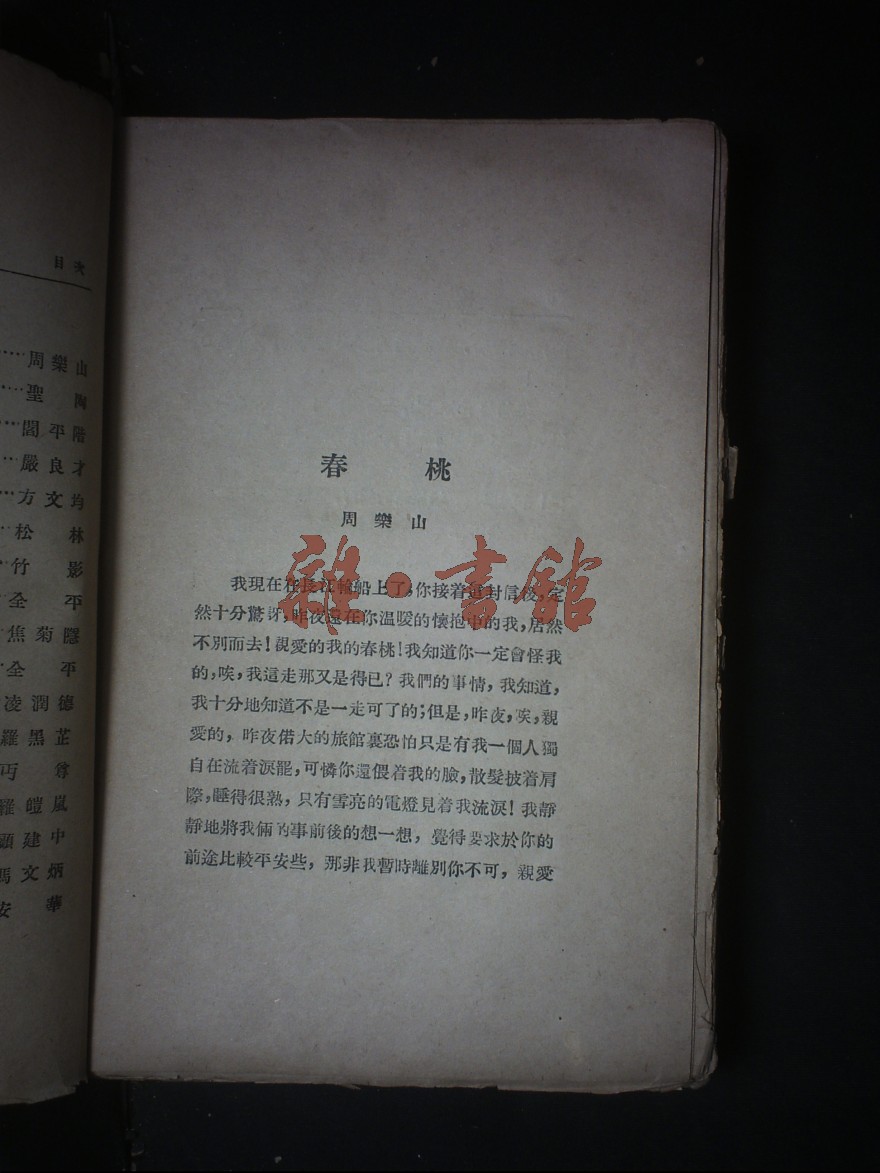 目次
周樂山
聖陶
閻平階
嚴良才
方文均
松林
竹影
全平
焦菊隱
全平
凌潤德
羅黑芷
丏尊
羅皚嵐
顧建中
馮文炳
安華
春桃
周樂山
雜·書館
我現在在長江輪船上了,你接着這封信後,定
然十分驚訝,昨夜還在你溫暖的懷抱中的我,居然
不別而去!親愛的我的春桃!我知道你一定會怪我
的,唉,我這走那又是得已?我們的事情,我知道,
我十分地知道不是一走可了的;但是,昨夜,唉,親
愛的,昨夜偌大的旅館裏恐怕只是有我一個人獨
自在流着淚罷,可憐你還偎着我的臉,散髮披着肩
際,睡得很熟,只有雪亮的電燈見着我流淚!我靜
靜地將我倆的事前後的想一想,覺得要求於你的
前途比較平安些,那非我暫時離別你不可,親愛